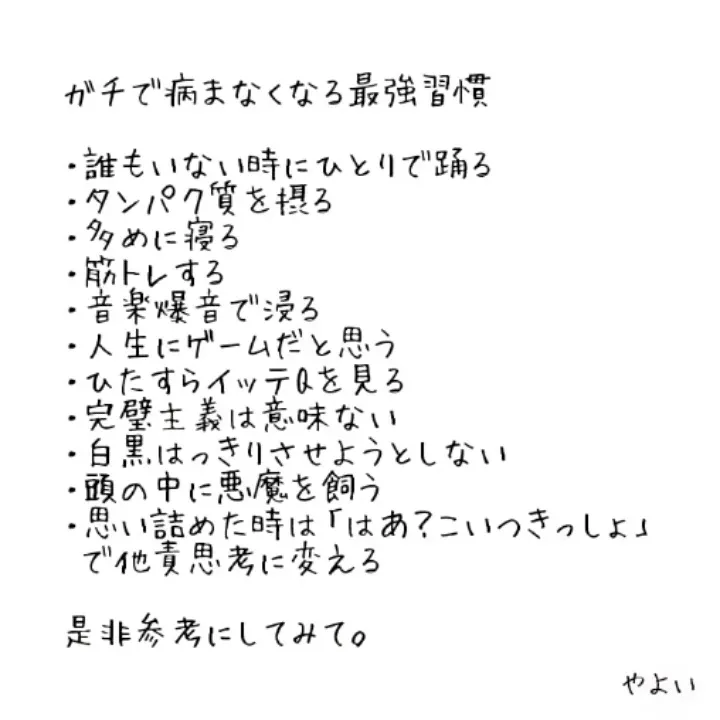 ガチで病まなくなる最強習慣
・誰もいない時にひとりで踊る
・タンパク質を摂る
・多めに寝る
・筋トレする
・音楽爆音で浸る
・人生にゲームだと思う
・ひたすらイッテQを見る
・完璧主義は意味ない
・白黒はっきりさせようとしない
・頭の中に悪魔を飼う
・思い詰めた時は「はあ?こいつきっしょ」
で他責思考に変える
是非参考にしてみて。
やよい